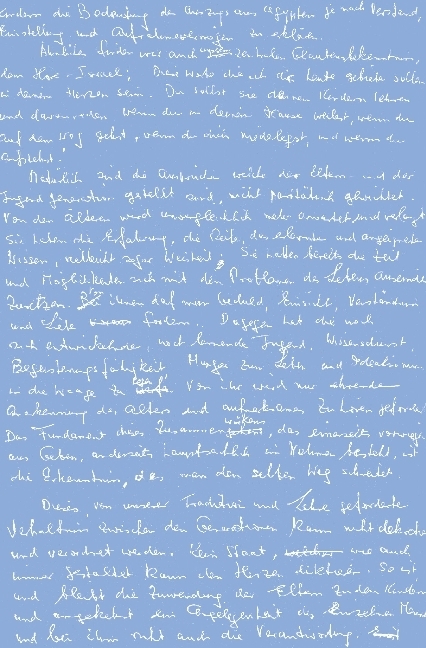 Kindern die Bedeutung des Auszugs aus Ägypten je nach Verstand,
Einstellung und Aufnahmevermögen zu erklären.
Ähnliches finden wir auch zentralen Glaubensbekenntnis,
dem Höre Israel; Diese Worte die ich dir heute gebiete sollen
in deinem Herzen sein. Du sollst sie deinen Kindern lehren
und davon reden wenn du in deinem Hause weilest, wenn du
auf dem Weg gehst, wenn du dich niederlegst, und wenn du
aufstehst.
Natürlich sind die Ansprüche welche der Eltern- und der
Jugendgeneration gestellt sind, nicht paritätisch gewichtet.
Von den Eltern wird unvergleichlich mehr erwartet und verlangt
Sie haben die Erfahrung, die Reife, das erlernte und
Wissen, vielleicht sogar Weisheit; Sie hatten bereits die Zeit
und Möglichkeiten sich mit den Problemen des Lebens auseinander
zusetzen. Von ihnen darf man Geduld, Einsicht, Verständnis
und Liebe fordern. Dagegen hat die noch
sich entwickelnde, noch lernende Jugend, Wissensdurst,
Begeisterungsfähigkeit Hunger zum Leben und Idealismus
in die Waage zu Von ihr wird nur
Anerkennung des Alters und aufmerksames Zuhören gefordert
Das Fundament dieses Zusammenwirkens, das einerseits vorwiegend
aus Geben, anderseits hauptsächlich in Nehmen besteht, ist
die Erkenntnis, das man den selben Weg schreitet.
Dieses, von unserer Tradition und Lehre geforderte
Verhältnis zwischen den Generationen kann nicht
und verordnet werden. Kein Staat, wie auch
immer gestaltet kann den Herzen diktieren. So ist
und bleibt die Zuwendung der Eltern zu den Kindern
und umgekehrt eine Angelegenheit des Einzelnen
und bei ihm ruht auch die Verantwortung.